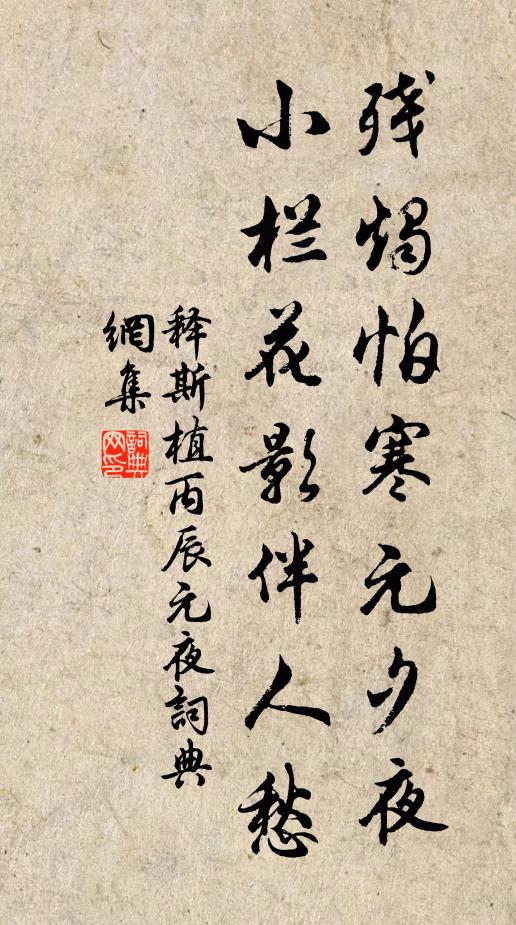 残烛怕寒元夕夜
小栏花影伴人愁
释斯植丙辰元夜詞典
網集
詞典网印